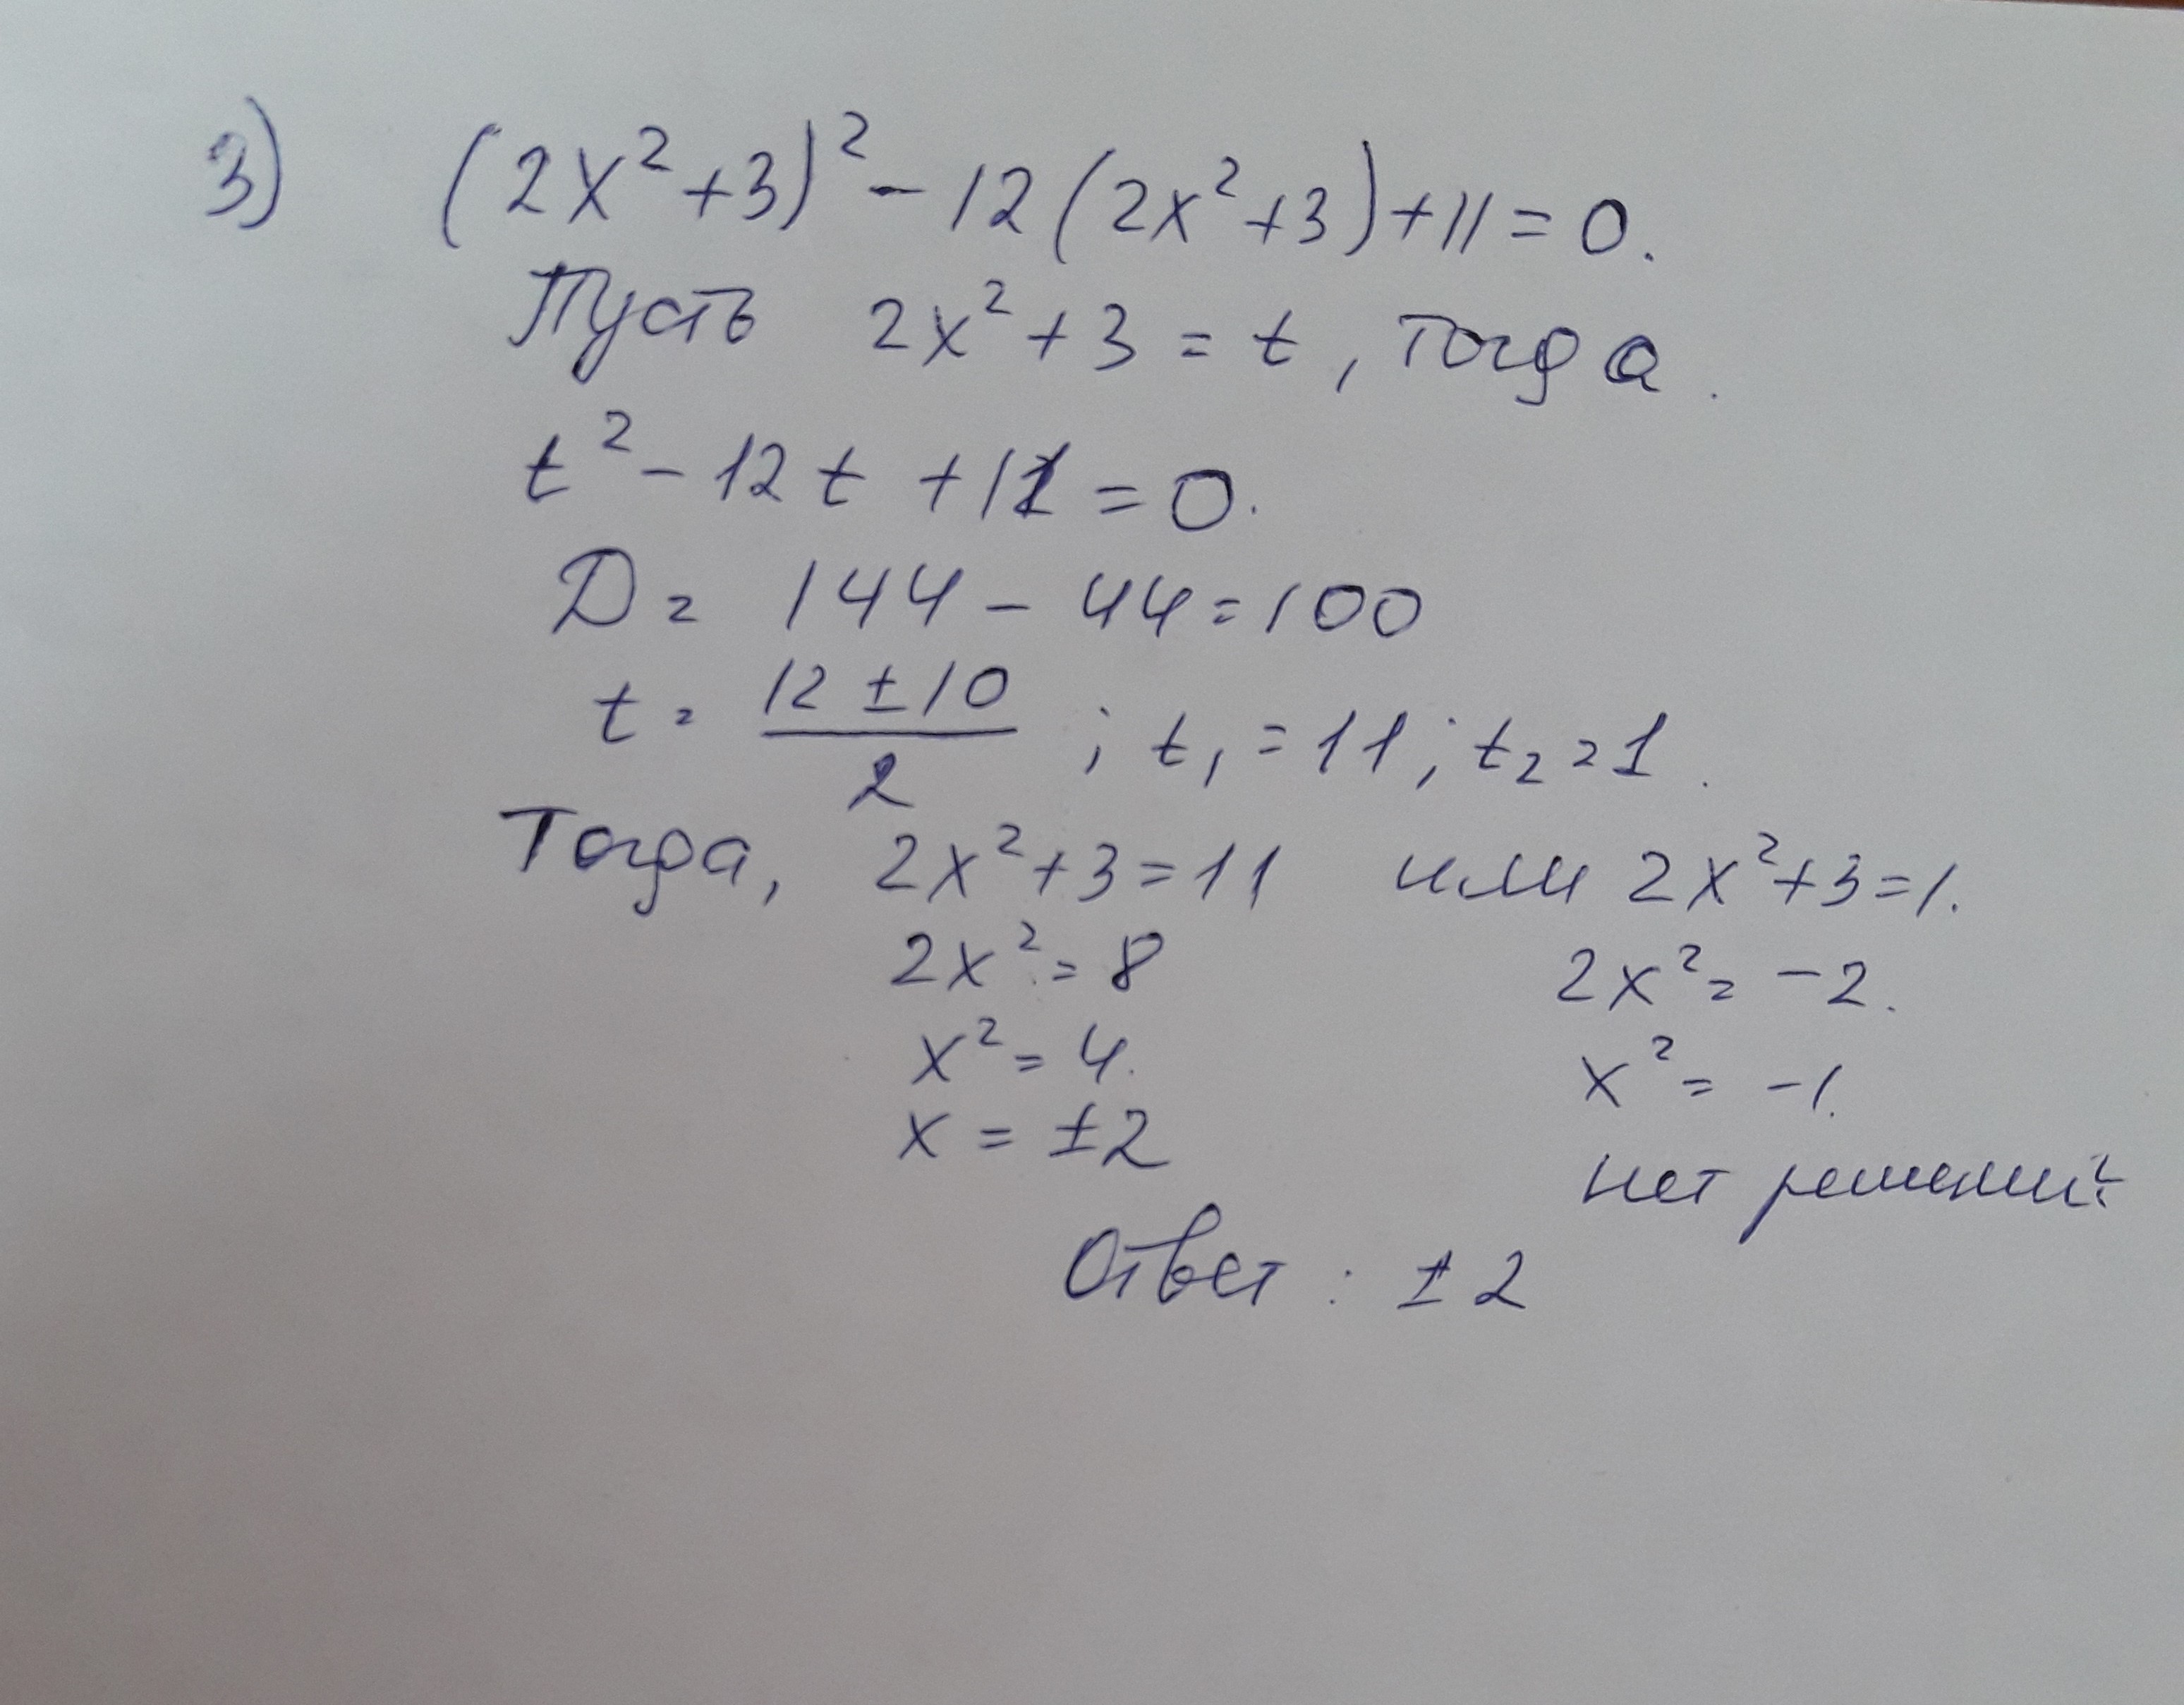 3) (2x²+3)² - 12(2x²+3)+11=0.
Пусть 2x²+3=t, тогда.
t² - 12t + 11 = 0.
D = 144 - 44 = 100
t = (12 ± 10)/2 ; t₁ = 11; t₂ = 1.
Тогда, 2x²+3=11 или 2x²+3=1.
2x² = 8 2x² = -2.
x² = 4. x² = -1.
x = ±2
нет решений
Ответ: ±2